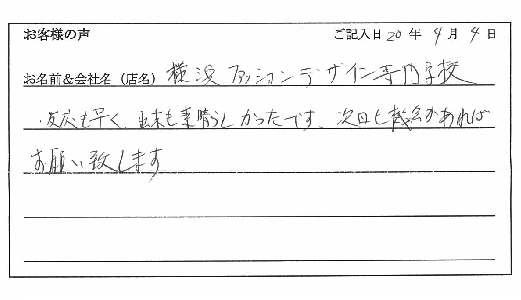 お客様の声 ご記入日 20 年 4 月 4 日
お名前&会社名（店名） 横浜ファッションデザイン専門学校
・反応も早く、出来も素晴らしかったです、次回も機会があれば
お願い致します